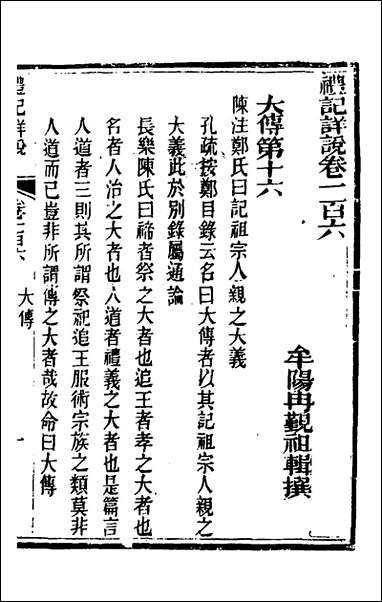 禮記詳說卷一百六
牟陽冉覲祖輯撰
大傳第十六
陳注鄭氏曰記祖宗人親之大義
孔疏按鄭目錄云名曰大傳者以其記祖宗人親之
大義此於別錄屬通論
長樂陳氏曰禘者祭之大者也追王者孝之大者也
名者人治之大者也人道者禮義之大者也是篇言
人道者三則其所謂祭祀追王服術宗族之類莫非
人道而已豈非所謂傳之大者哉故命曰大傳
禮記詳說
卷一百六
大傳
一